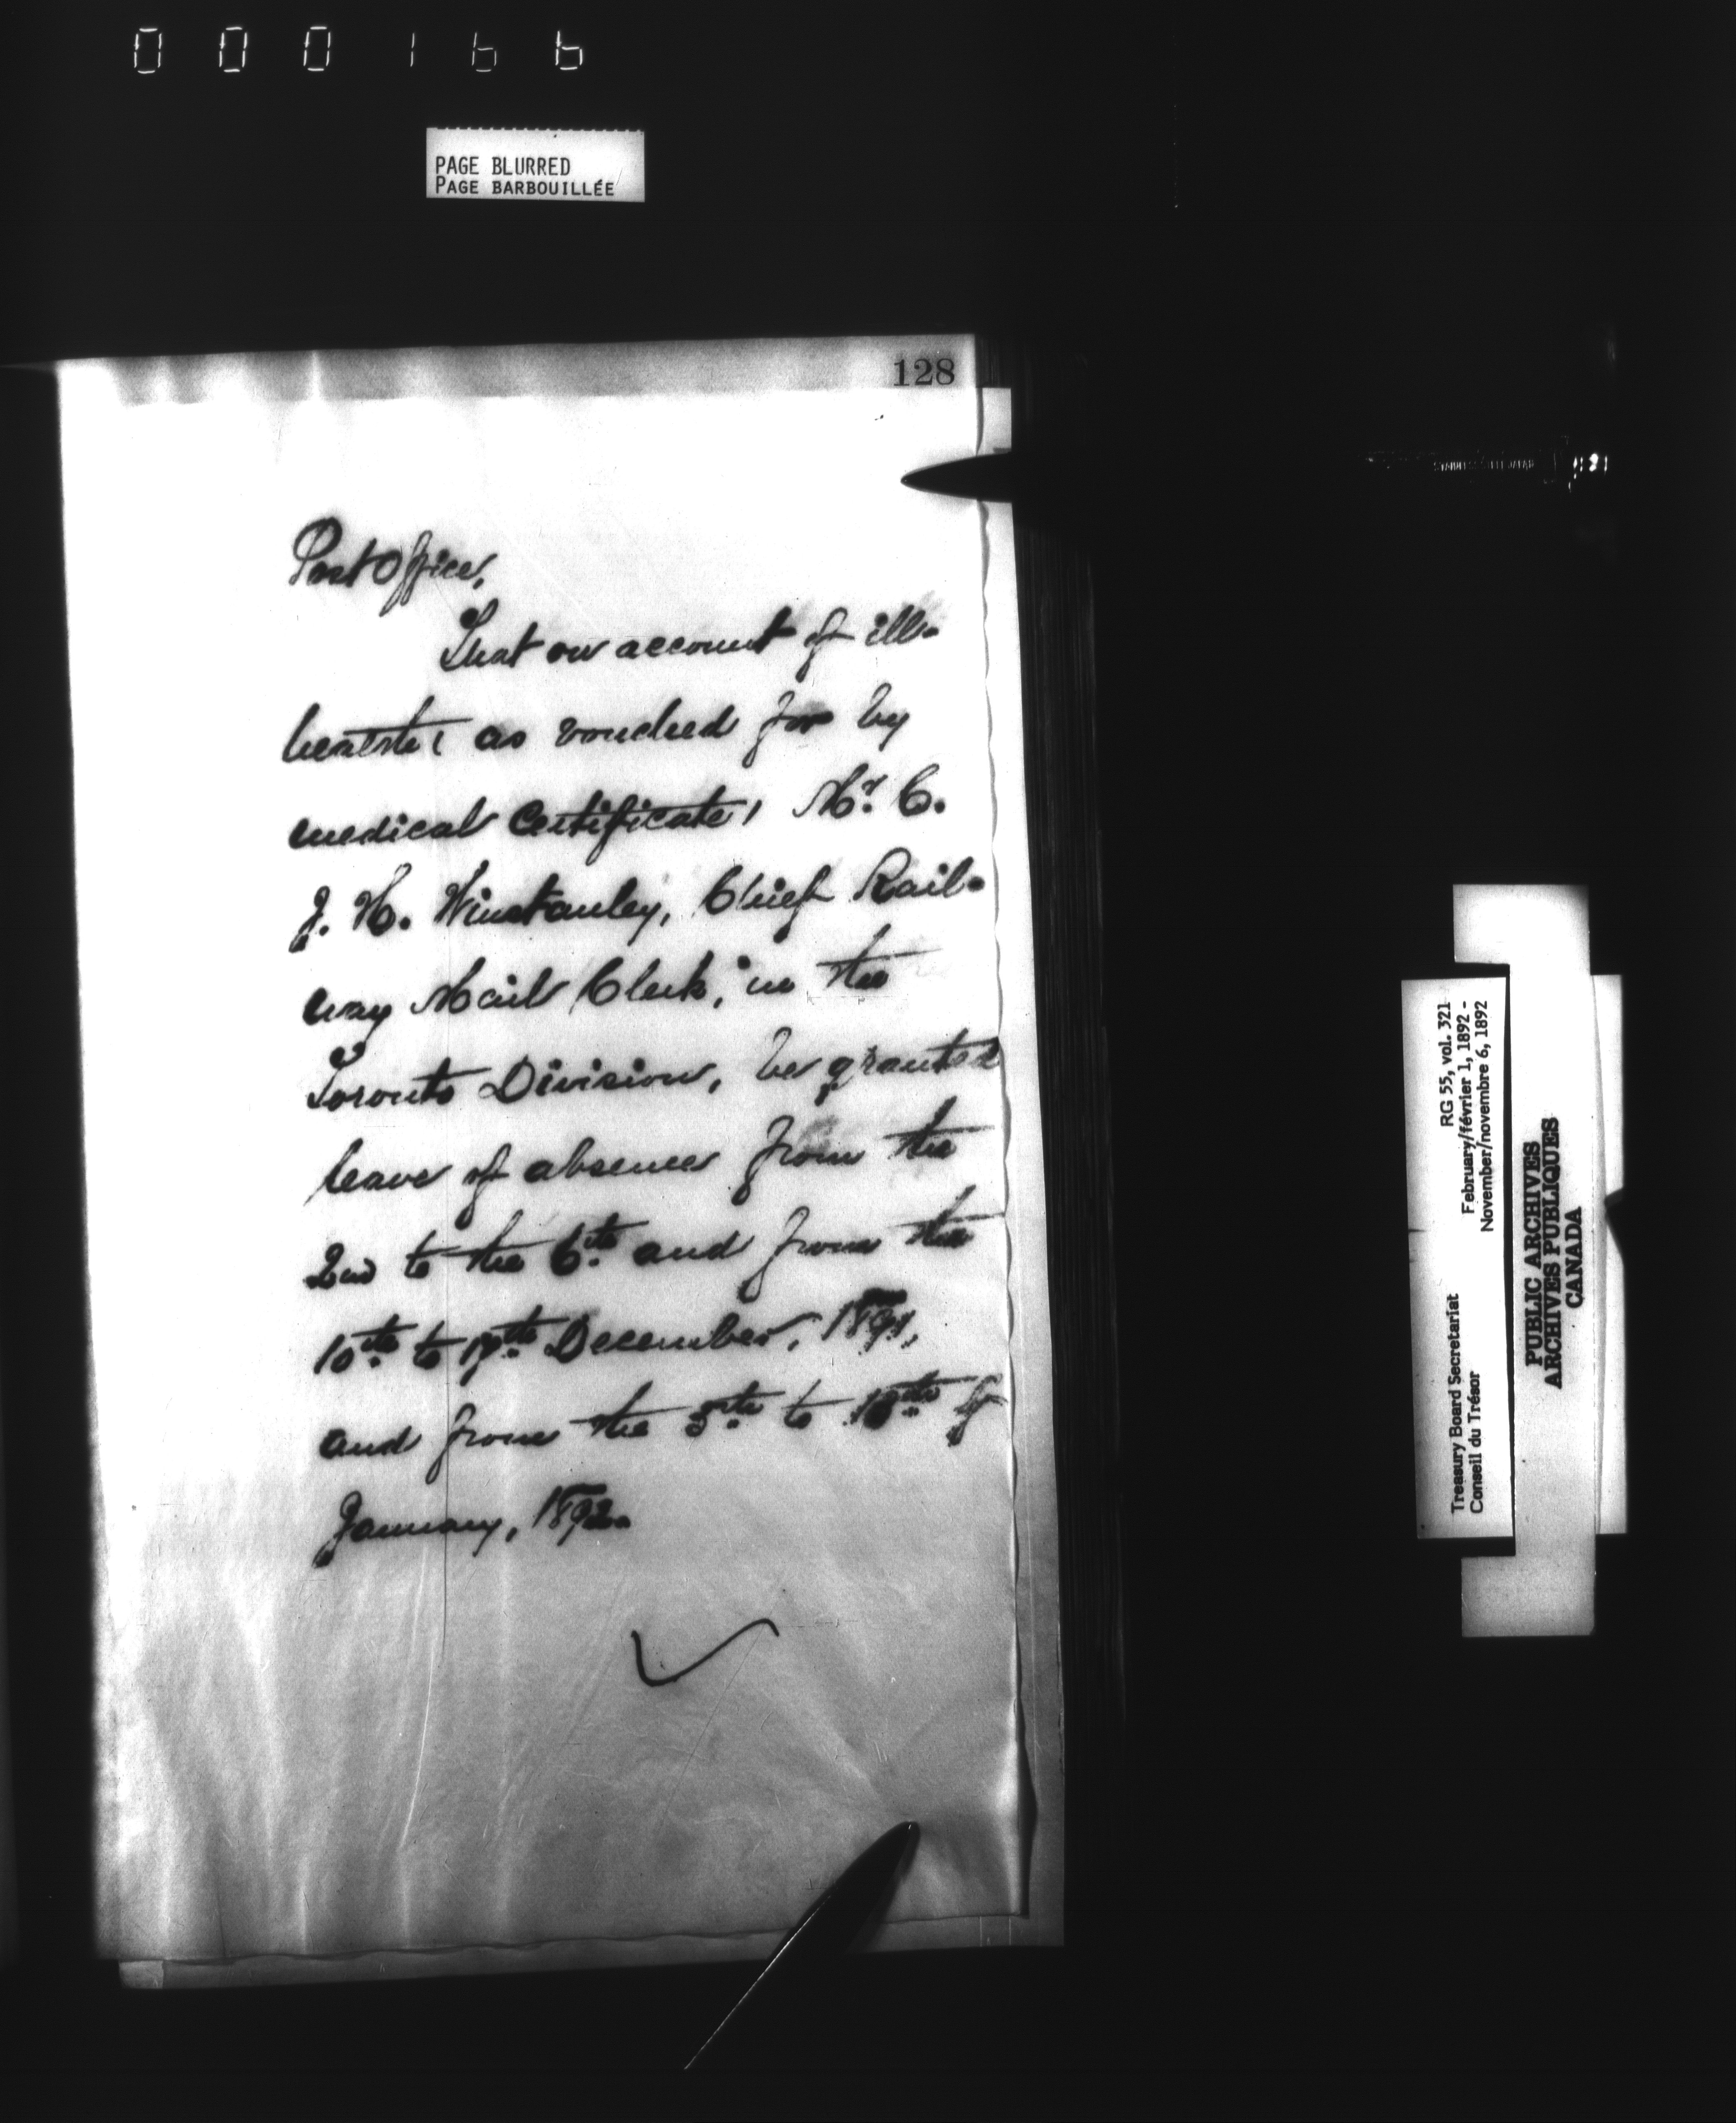 000166
PAGE BLURRED
PAGE BARBOUILLÉE
128
Post Office,
That on account of ill-
health, as vouched for by
medical certificate, Mr. C.
J. H. Winstanley, Chief Rail-
way Mail Clerk, in the
Toronto Division, be granted
leave of absence from the
2nd to the 6th and from the
10th to 17th December, 1891,
and from the 5th to 18th of
January, 1892.
Treasury Board Secretariat
Conseil du Trésor
RG 55, vol. 321
February/février 1, 1892 -
November/novembre 6, 1892
PUBLIC ARCHIVES
ARCHIVES PUBLIQUES
CANADA